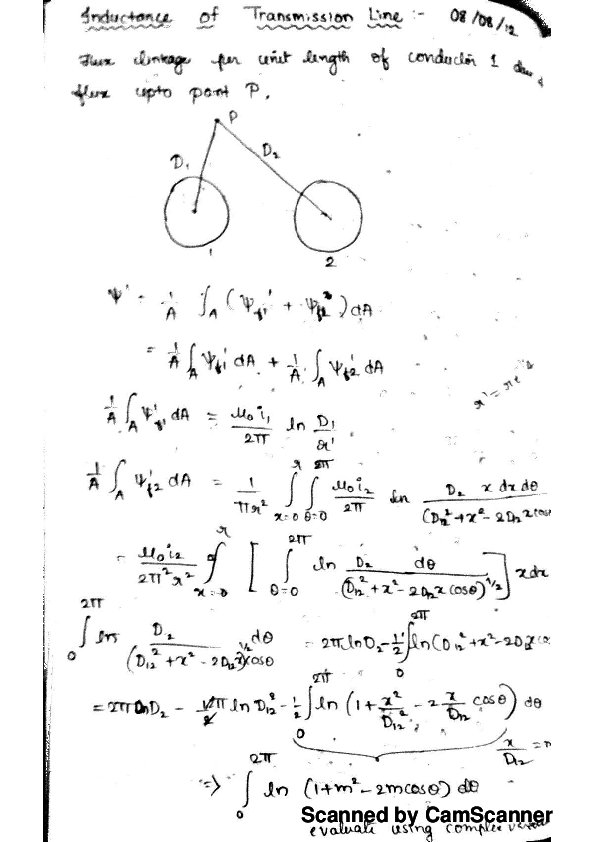 Inductance of Transmission Line :- 08/08/12
Flux linkage per unit length of conductor 1 due
flux upto point P,
P
D₁ D₂
1 2
Ψ' = 1/A ∫_A (Ψ'_f1 + Ψ'_f2) dA
= 1/A ∫_A Ψ'_f1 dA + 1/A ∫_A Ψ'_f2 dA
r' = r e^-1/4
1/A ∫_A Ψ'_f1 dA = μ₀i₁/2π ln D₁/r'
1/A ∫_A Ψ'_f2 dA = 1/πr² ∫_{x=0}^{r} ∫_{θ=0}^{2π} μ₀i₂/2π ln D₂ x dx dθ/(D₁₂²+x²-2D₁₂xcosθ
= μ₀i₂/2π²r² ∫_{x=0}^{r} [ ∫_{θ=0}^{2π} ln D₂ dθ/(D₁₂²+x²-2D₁₂xcosθ)^{1/2} ] xdx
∫_0^{2π} ln D₂/(D₁₂²+x²-2D₁₂x)^{1/2}cosθ dθ = 2π lnD₂ - 1/2 ∫_0^{2π} ln(D₁₂²+x²-2D₁₂xco
= 2π lnD₂ - 1/2 2π ln D₁₂² - 1/2 ∫_0^{2π} ln (1 + x²/D₁₂² - 2 x/D₁₂ cosθ) dθ
x/D₁₂ = m
⇒ ∫_0^{2π} ln (1+m²-2mcosθ) dθ
Scanned by CamScanner
evaluate using complex